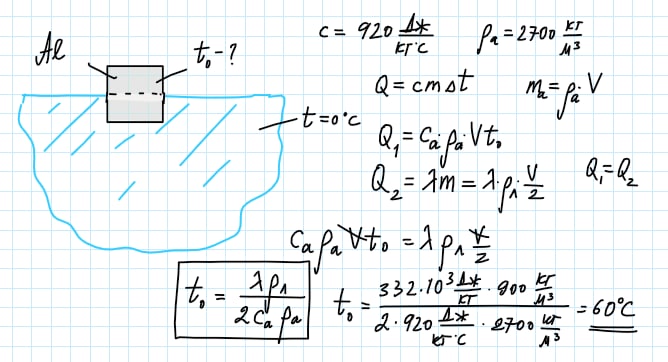 Al
t₀-?
t=0°C
c = 920 Дж/кг°C ρₐ=2700 кг/м³
Q=cmΔt mₐ=ρₐ·V
Q₁=cₐρₐVt₀
Q₂=λm=λ·ρл·V/2 Q₁=Q₂
cₐρₐVt₀=λρл V/2
t₀ = λρл/2cₐρₐ
t₀ = 332·10³ Дж/кг · 900 кг/м³ / 2·920 Дж/кг°C · 2700 кг/м³ = 60°C